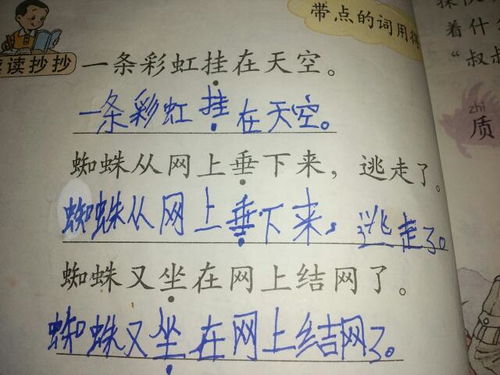 带点的词用得
读读抄抄
一条彩虹挂在天空。
一条彩虹挂在天空。
蜘蛛从网上垂下来，逃走了。
蜘蛛从网上垂下来，逃走了。
蜘蛛又坐在网上结网了。
蜘蛛又坐在网上结网了。
着什
“叔
zhì
质